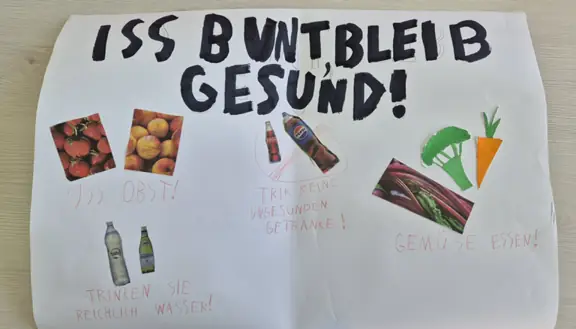 ISS BUNT, BLEIB
GESUND!
ISS OBST!
TRINK KEINE
UNGESUNDEN
GETRÄNKE!
GEMÜSE ESSEN!
TRINKEN SIE
REICHLICH WASSER!